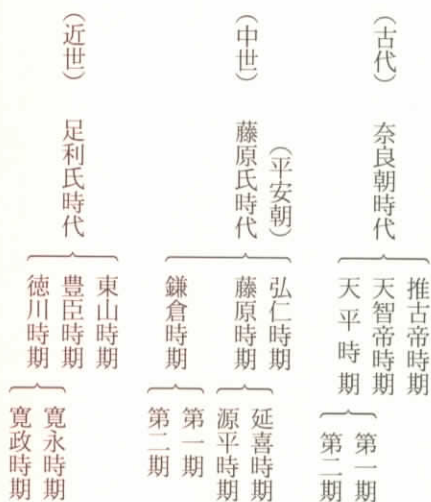 （古代）　奈良朝時代
推古帝時期
天智帝時期
天平時期
第一期
第二期
（中世）　藤原氏時代
（平安朝）
弘仁時期
藤原時期
延喜時期
源平時期
鎌倉時期
第一期
第二期
（近世）　足利氏時代
東山時期
豊臣時期
徳川時期
寛永時期
寛政時期